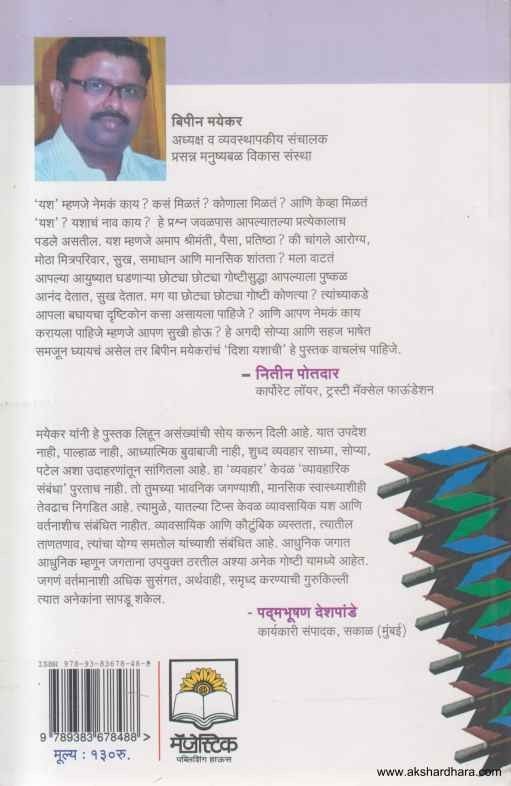 बिपीन मयेकर
अध्यक्ष व व्यवस्थापकीय संचालक
प्रसन्न मनुष्यबळ विकास संस्था
'यश' म्हणजे नेमकं काय? कसं मिळतं? कोणाला मिळतं? आणि केव्हा मिळतं
'यश'? यशाचं नाव काय? हे प्रश्न जवळपास आपल्यातल्या प्रत्येकालाच
पडले असतील. यश म्हणजे अमाप श्रीमंती, पैसा, प्रतिष्ठा? की चांगले आरोग्य,
मोठा मित्रपरिवार, सुख, समाधान आणि मानसिक शांतता? मला वाटतं
आपल्या आयुष्यात घडणाऱ्या छोट्या छोट्या गोष्टीसुद्धा आपल्याला पुष्कळ
आनंद देतात, सुख देतात. मग या छोट्या छोट्या गोष्टी कोणत्या? त्यांच्याकडे
आपला बघायचा दृष्टिकोन कसा असायला पाहिजे? आणि आपण नेमकं काय
करायला पाहिजे म्हणजे आपण सुखी होऊ? हे अगदी सोप्या आणि सहज भाषेत
समजून घ्यायचं असेल तर बिपीन मयेकरांचं 'दिशा यशाची' हे पुस्तक वाचलंच पाहिजे.
– नितीन पोतदार
कार्पोरेट लॉयर, ट्रस्टी मॅक्सेल फाऊंडेशन
मयेकर यांनी हे पुस्तक लिहून असंख्यांची सोय करून दिली आहे. यात उपदेश
नाही, पाल्हाळ नाही, आध्यात्मिक बुवाबाजी नाही, शुध्द व्यवहार साध्या, सोप्या,
पटेल अशा उदाहरणांतून सांगितला आहे. हा 'व्यवहार' केवळ 'व्यावहारिक
संबंधा' पुरताच नाही. तो तुमच्या भावनिक जगण्याशी, मानसिक स्वास्थ्याशीही
तेवढाच निगडित आहे. त्यामुळे, यातल्या टिप्स केवळ व्यावसायिक यश आणि
वर्तनाशीच संबंधित नाहीत. व्यावसायिक आणि कौटुंबिक व्यस्तता, त्यातील
ताणतणाव, त्यांचा योग्य समतोल यांच्याशी संबंधित आहे. आधुनिक जगात
आधुनिक म्हणून जगताना उपयुक्त ठरतील अश्या अनेक गोष्टी यामध्ये आहेत.
जगणं वर्तमानाशी अधिक सुसंगत, अर्थवाही, समृध्द करण्याची गुरुकिल्ली
त्यात अनेकांना सापडू शकेल.
- पद्मभूषण देशपांडे
कार्यकारी संपादक, सकाळ (मुंबई)
ISBN 978-93-83678-48-8
9 789383 678488 >
मूल्य : १३०रु.
मॅजेस्टिक
पब्लिशिंग हाऊस
www.akshardhara.com